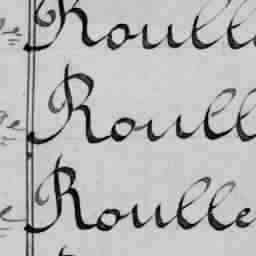 Roull
Roull
Roulle